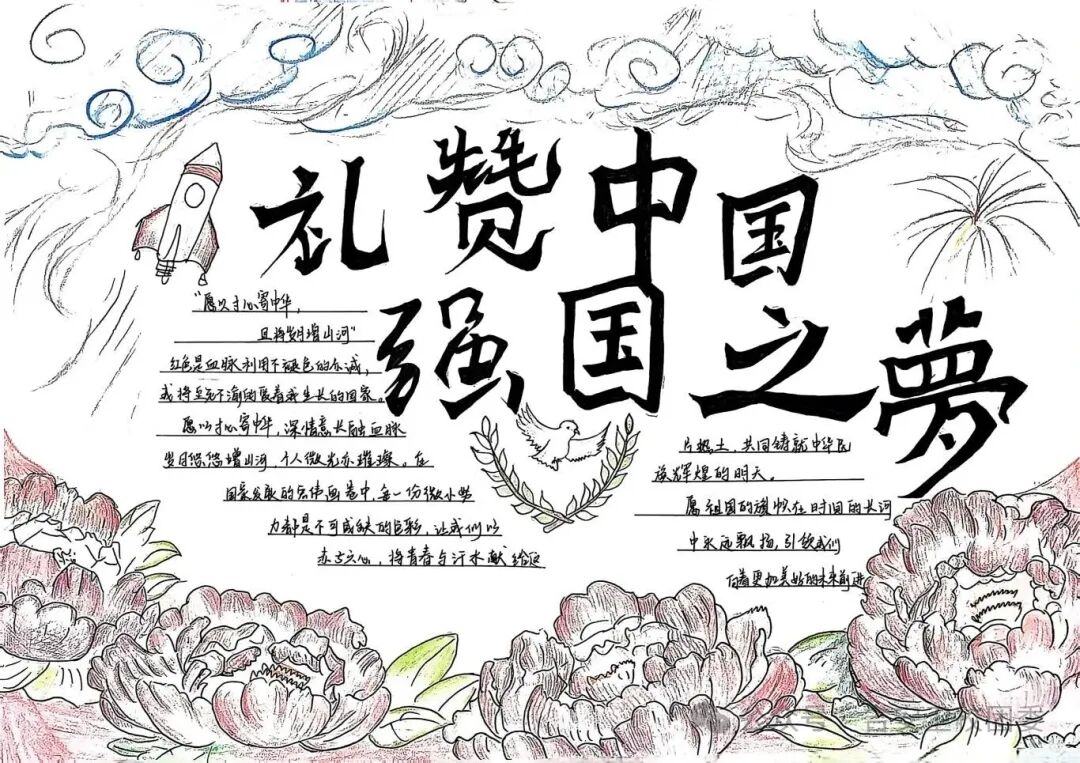 礼赞中国
强国之夢
“愿以寸心寄中华,
且将岁月增山河”
红色是血脉利用不褪色的赤诚,
或将至死不渝的爱着我生长的国家。
愿以寸心寄中华,深情意长融血脉
岁月悠悠增山河,个人微光亦璀璨。在
国家发展的宏伟画卷中,每一份微小努
力都是不可或缺的色彩,让我们以
赤子之心,将青春与汗水献给这
片热土,共同铸就中华民
族辉煌的明天。
愿祖国的旗帜在时间的长河
中永远飘扬,引领我们
向着更加美好的未来前进